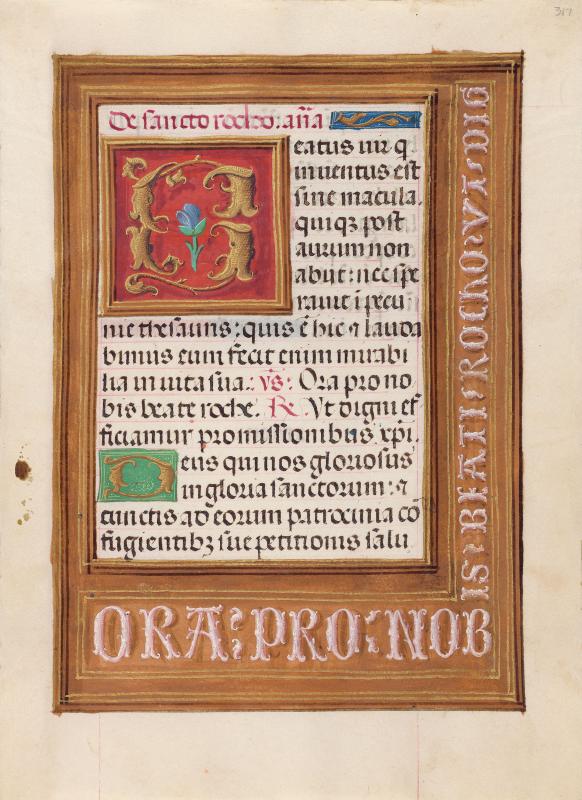 317
De sancto rocho. añā
Beatus vir q̄
inuentus est
sine macula.
qui qꝫ post
aurum non
abijt: nec spe
rauit ī pecu
nie thesauris: quis ē hic ⁊ lauda
bimus eum fecit enim mirabi
lia in uita sua. vs: Ora pro no
bis beate roche. ℟. Vt digni ef
ficiamur promissionibus xp̄i.
Deus qui nos gloriosus
in gloria sanctorum: ⁊
cunctis ad eorum patrocinia cō
fugientibꝫ sue petitionis salu
ORA: PRO: NOB
IS: BEATI: ROCHO: VT: DIG